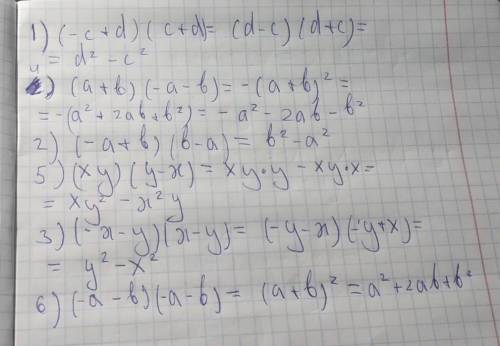 1) (-c+d)(c+d)= (d-c)(d+c)=
= d² - c²
4) (a+b)(-a-b)= -(a+b)²=
= -(a²+2ab+b²)= -a²-2ab-b²
2) (-a+b)(b-a)= b²-a²
5) (xy)(y-x)= xy·y - xy·x=
= xy² - x²y
3) (-x-y)(x-y)= (-y-x)(-y+x)=
= y²-x²
6) (-a-b)(-a-b)= (a+b)² = a²+2ab+b²